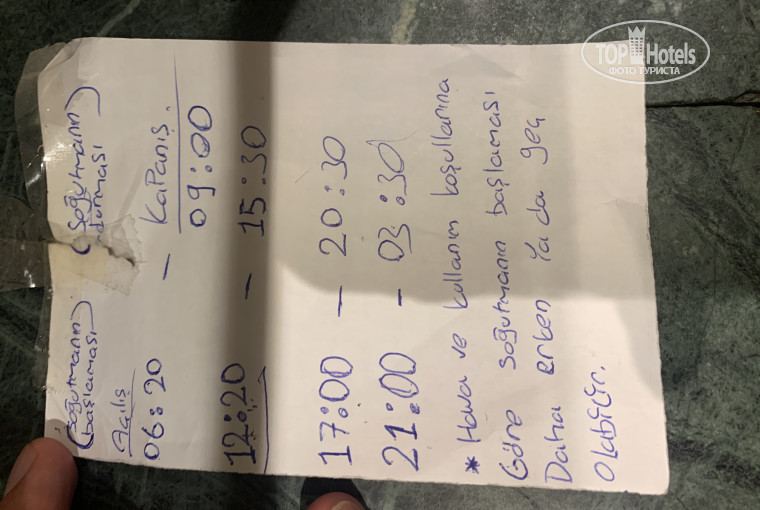 (soğutmanın başlaması) (soğutmanın durması)
Açılış - Kapanış
06:20 09:00
12:20 - 15:30
17:00 - 20:30
21:00 - 03:30
* Hava ve kullanım koşullarına
Göre soğutmanın başlaması
Daha erken ya da geç
olabilir.
TOP Hotels
ФОТО ТУРИСТА